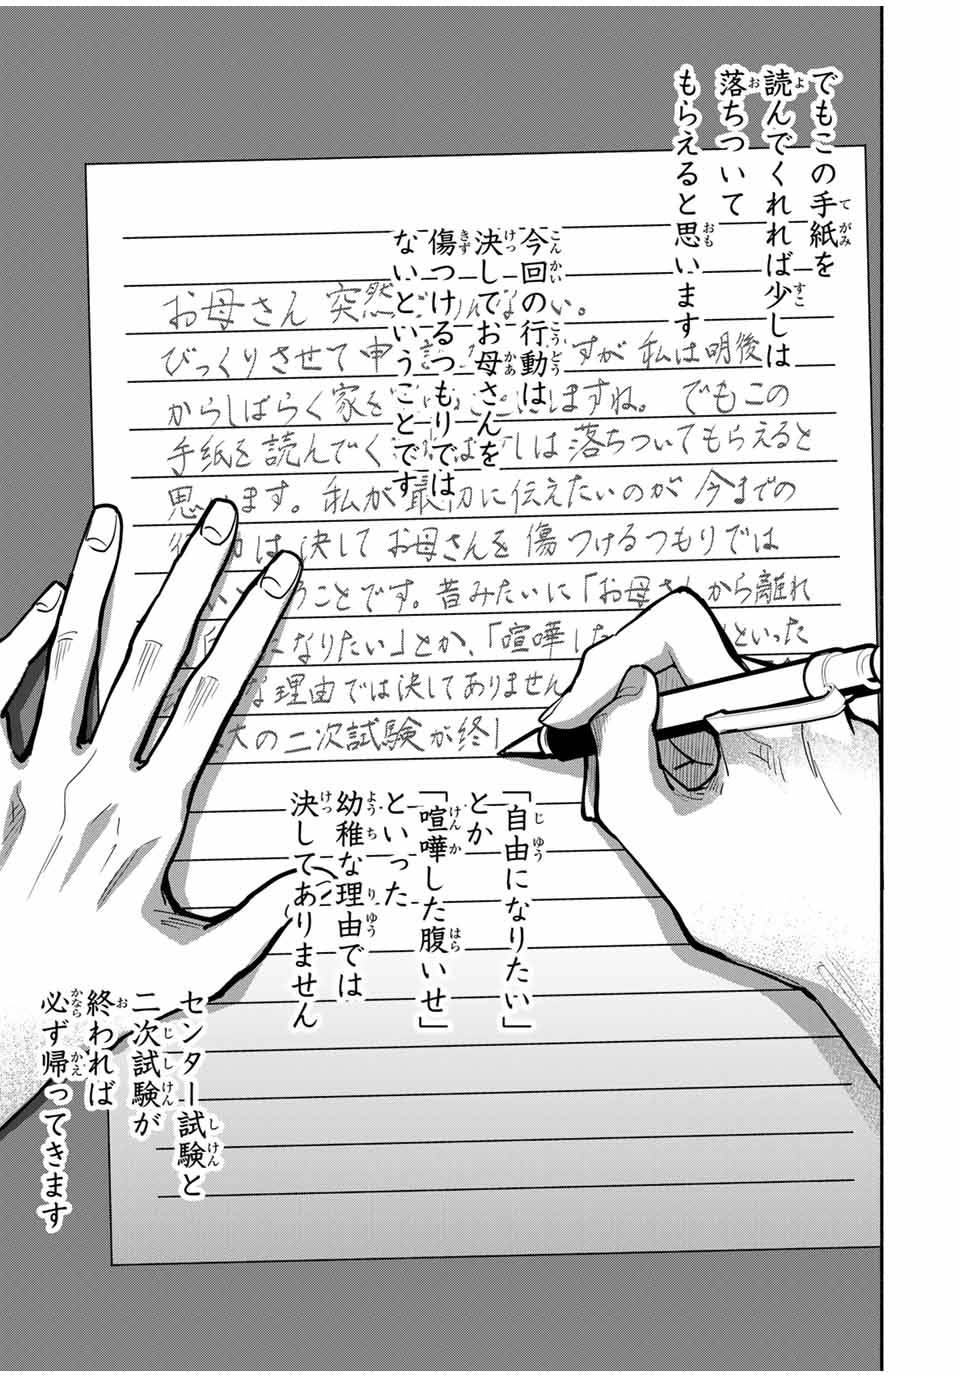 でもこの手紙を
読んでくれれば少しは
落ちついて
もらえると思います
今回の行動は
決してお母さんを
傷つけるつもりでは
ないということです
お母さん 突然ごめんなさい。
びっくりさせて申し訳 すが 私は明後
からしばらく家を ますね。 でもこの
手紙を読んでく しは落ちついてもらえると
思います。私が最初に伝えたいのが 今までの
は 決して お母さんを 傷つけるつもりでは
うことです。昔みたいに「お母さんから離れ
になりたい」とか、「喧嘩した といった
な理由では決してありません
大の二次試験が終
「自由になりたい」
とか
「喧嘩した腹いせ」
といった
幼稚な理由では
決してありません
センター試験と
二次試験が
終われば
必ず帰ってきます